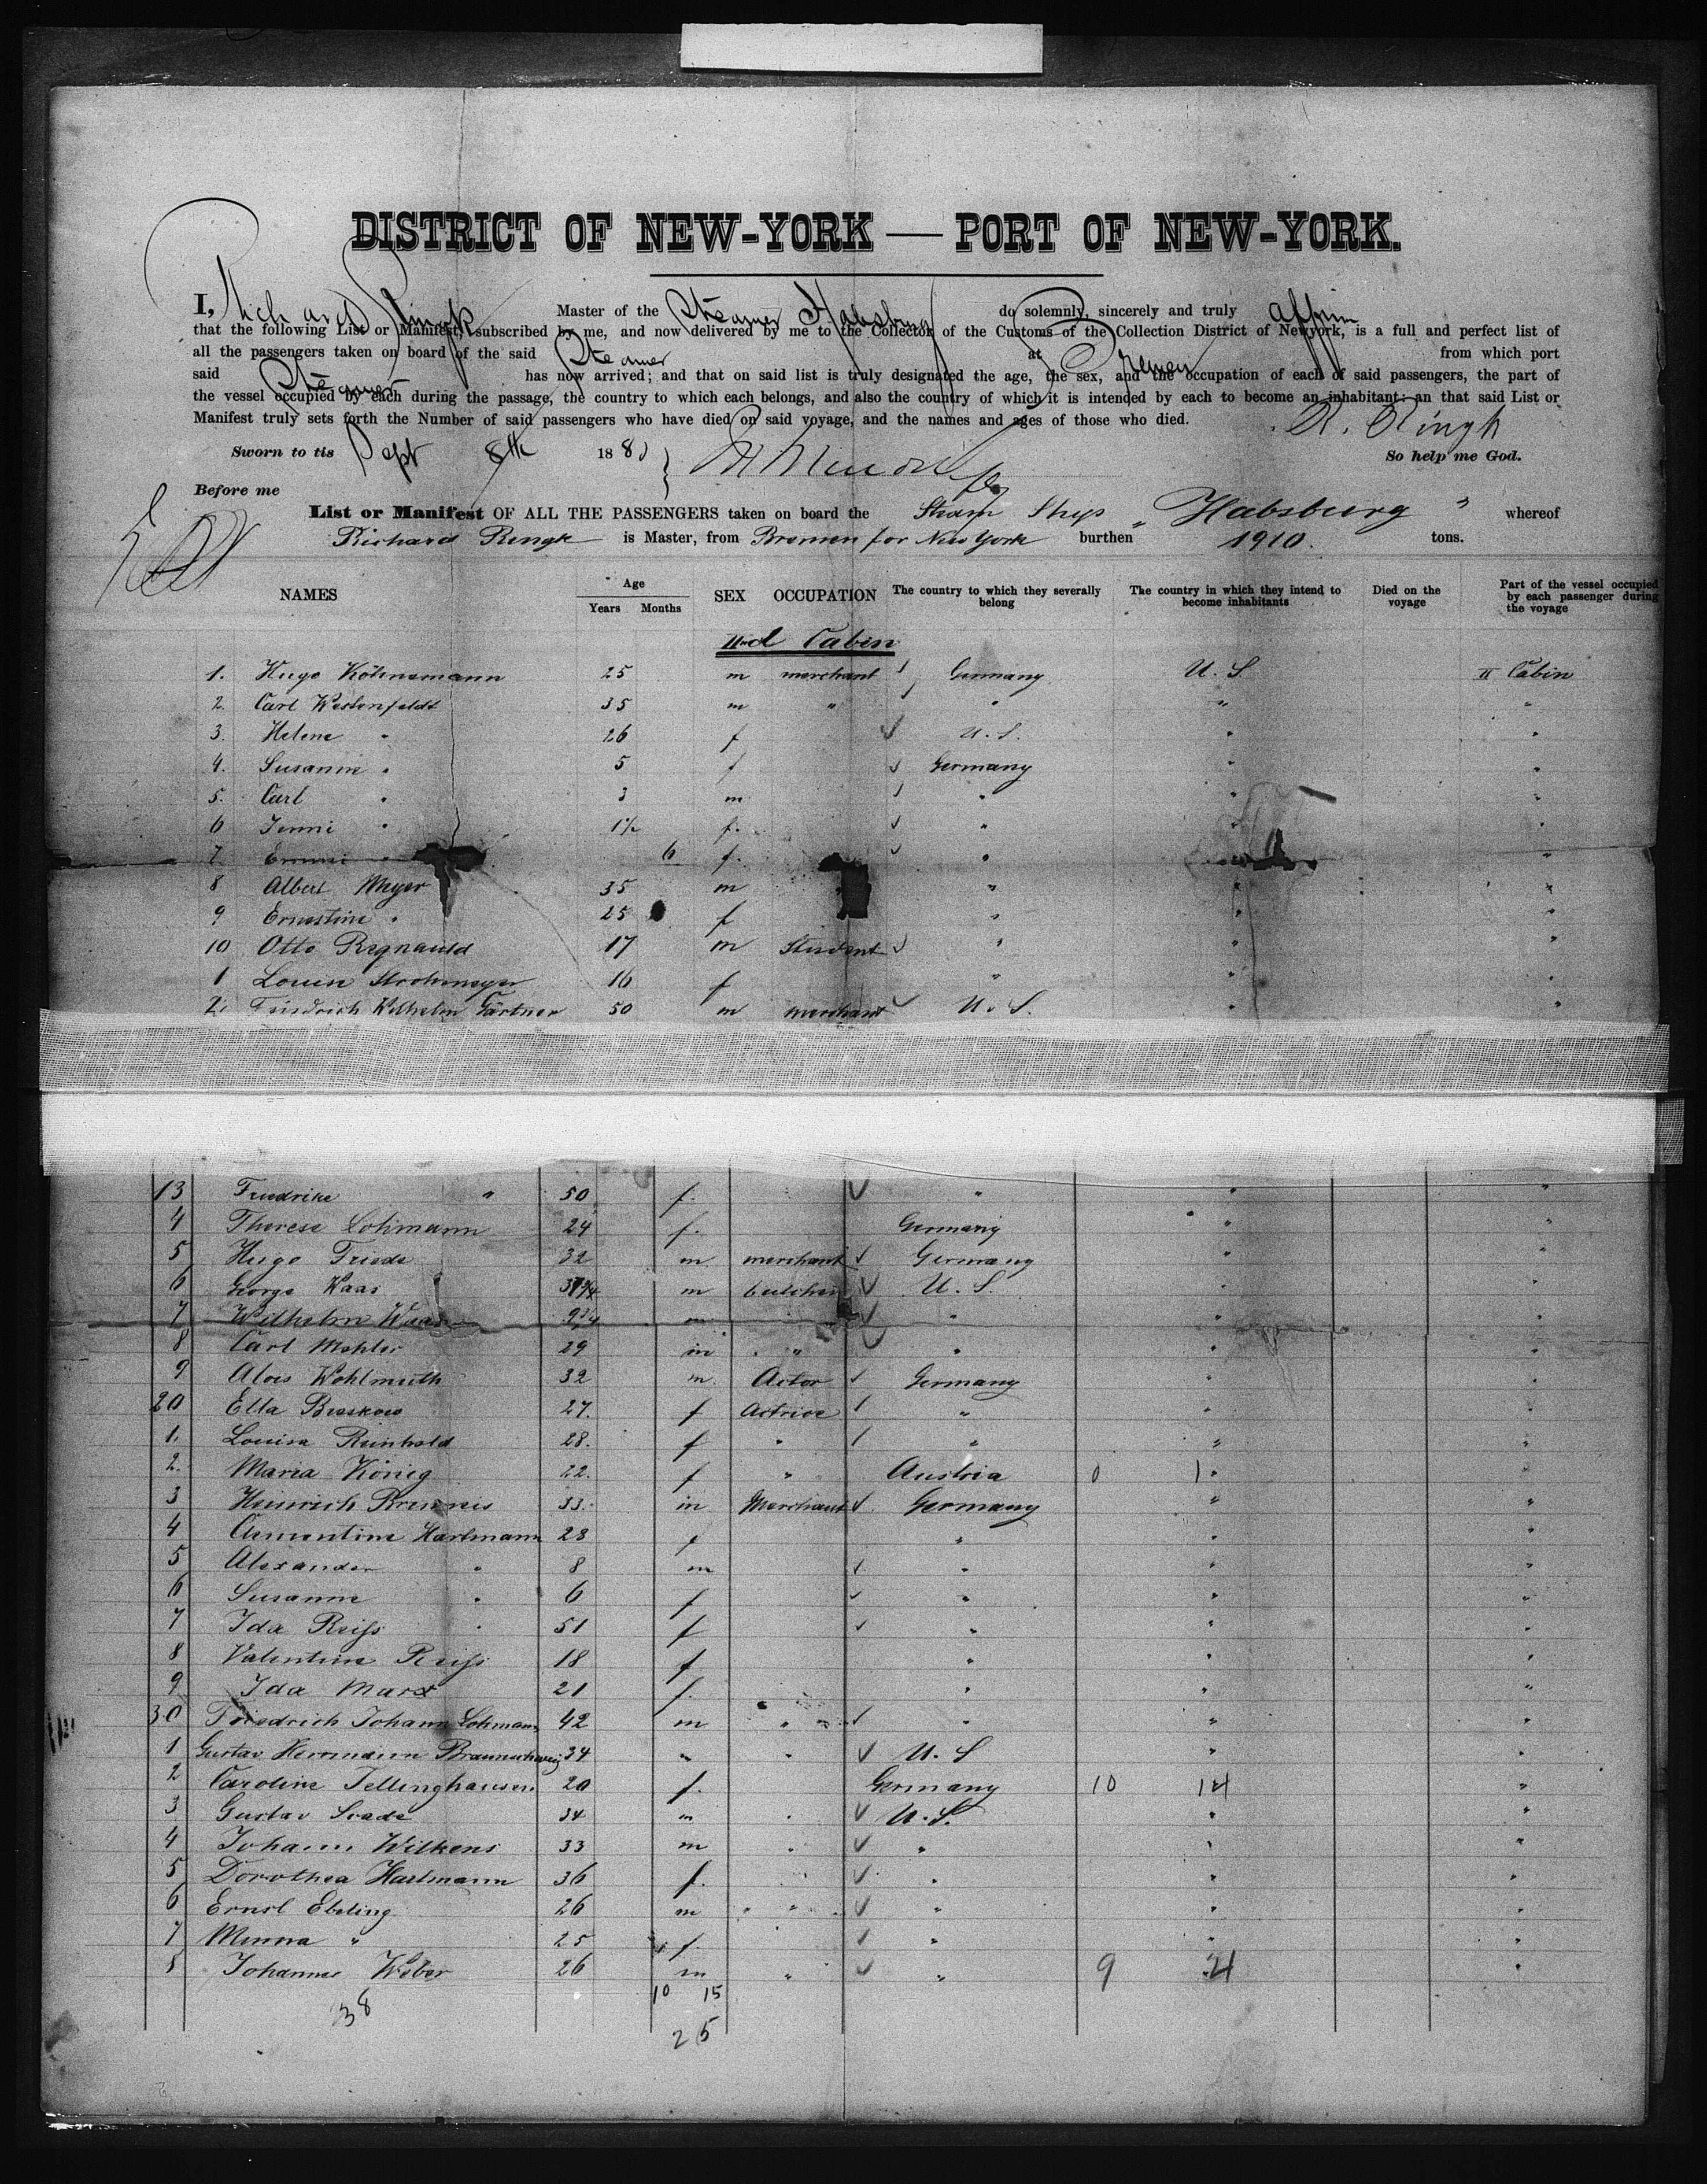 DISTRICT OF NEW-YORK — PORT OF NEW-YORK.
I, Richard Ringk Master of the Steamer Habsburg do solemnly, sincerely and truly affirm
that the following List or Manifest, subscribed by me, and now delivered by me to the Collector of the Customs of the Collection District of Newyork, is a full and perfect list of
all the passengers taken on board of the said Steamer at Bremen from which port
said Steamer has now arrived; and that on said list is truly designated the age, the sex, and the occupation of each of said passengers, the part of
the vessel occupied by each during the passage, the country to which each belongs, and also the country of which it is intended by each to become an inhabitant: an that said List or
Manifest truly sets forth the Number of said passengers who have died on said voyage, and the names and ages of those who died. R. Ringk
Sworn to tis Sept 8th 188 So help me God.
Before me
List or Manifest OF ALL THE PASSENGERS taken on board the Steam Ship „Habsburg" whereof
Richard Ringk is Master, from Bremen for New York burthen 1910. tons.
NAMES Age Years Months SEX OCCUPATION The country to which they severally belong The country in which they intend to become inhabitants Died on the voyage Part of the vessel occupied by each passenger during the voyage
IInd Cabin
1. Hugo Köhnemann 25 m merchant Germany U. S. II Cabin
2. Carl Westenfeldt 35 m " " " "
3. Helene " 26 f U. S. " "
4. Susanne " 5 f Germany " "
5. Carl " 3 m " " "
6 Jenni " 1½ f. " " "
7. " 6 f. " "
8 Albert Meyer 35 m " " "
9 Ernestine " 25 f " " "
10 Otto Regnauld 17 m Student " " "
1 Louise Strohmeyer 16 f " " "
2. Friedrich Wilhelm Gärtner 50 m merchant U. S. " "
13 Friedrike " 50 f. " " "
4 Therese Lohmann 24 f. Germany " "
5 Hugo Friede 32 m merchant Germany " "
6 George Waas m butcher U. S. " "
7 Wilhelm Waas 9¾ m " " "
8 Carl Mohler 29 m " " " "
9 Alois Wohlmuth 32 m. Actor Germany " "
20 Ella 27. f Actrice " " "
1. Louisa Reinhold 28. f " " " "
2. Maria König 22. f " Austria 0 1 "
3 Heinrich 33. m Merchant Germany " "
4 Hartmann 28 f " " "
5 Alexander " 8 m " " "
6 Susanne " 6 f " " "
7 Ida Reiß 51 f " " "
8 Valentine Reiß 18 f " " "
9 Ida Marx 21 f. " " "
30 Friedrich Johann Lohmann 42 m " " " "
1 Gustav Herrmann Braunschweig 34 " " U. S " "
2 Caroline Tellinghausen 20 f. Germany 10 14 "
3 Gustav 34 m " U. S. " "
4 Johann Wilkens 33 m " " " "
5 Dorothea Hartmann 36 f. " " "
6 Ernst Ebeling 26 m " " " "
7 Minna " 25 f. " " "
8 Johannes Weber 26 m " " 9 "
38 10 15
25